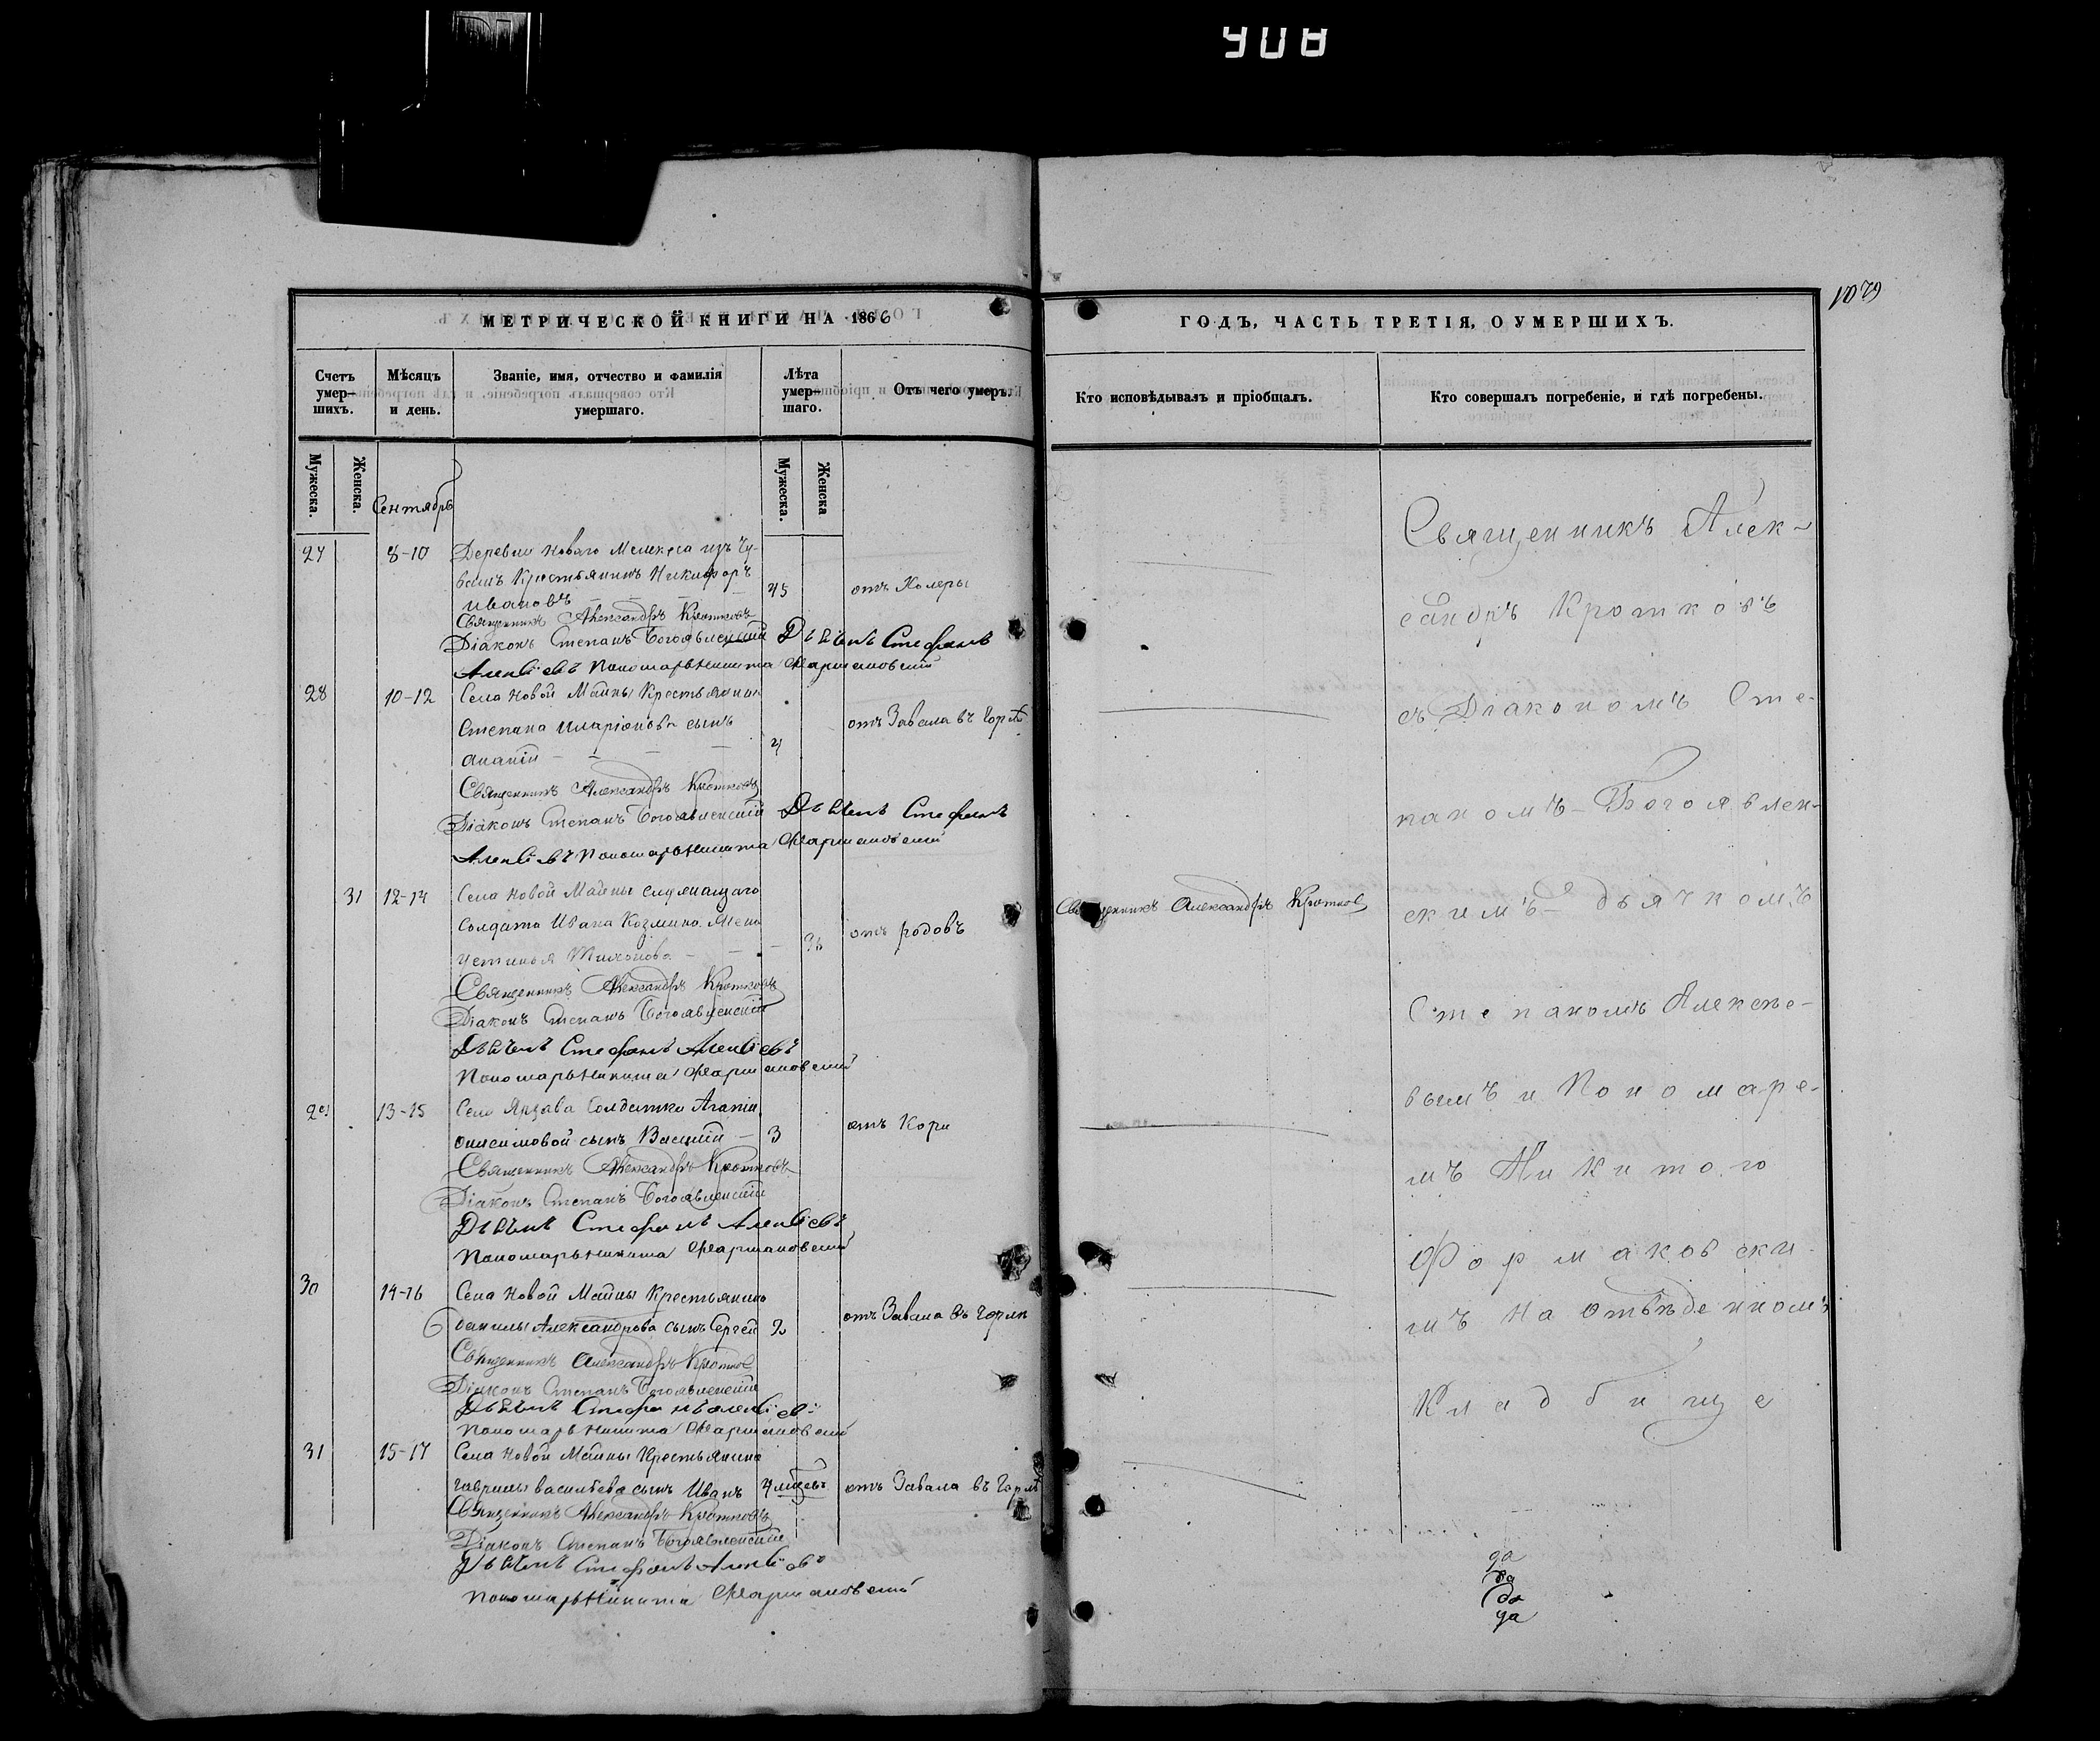 908
1029
МЕТРИЧЕСКОЙ КНИГИ НА 1866
Счетъ умер-шихъ.
Мѣсяцъ и день.
Званіе, имя, отчество и фамилія умершаго.
Лѣта умер-шаго.
Отъ чего умеръ.
Мужеска.
Женска.
Сентябрь
Мужеска.
Женска
27 8-10 Деревни Новаго Мелекеса изъ Чу-
вашъ Крестьянинъ Никифоръ
Ивановъ 45 отъ Холеры
Священникъ Александръ Кротковъ
Діаконъ Степанъ Богоявленскій Дьячекъ Стефанъ
Алексіевъ Пономарь Никита Формаковскій
28 10-12 Села Новой Майны Крестьянина
Степана Иларіонова сынъ отъ Завала въ Горлѣ
Ананій 4
Священникъ Александръ Кротковъ
Діаконъ Степанъ Богоявленскій Дьячекъ Стефанъ
Алексіевъ Пономарь Никита Формаковскій
31 12-14 Села Новой Майны служащаго
Солдата Ивана Козмина Жена
Устинья Тихонова отъ родовъ
Священникъ Александръ Кротковъ
Діаконъ Степанъ Богоявленскій
Дьячекъ Стефанъ Алексіевъ
Пономарь Никита Формаковскій
29 13-15 Села Солдатки Агапіи
Онисимовой сынъ Василій 3 отъ Кори
Священникъ Александръ Кротковъ
Діаконъ Степанъ Богоявленскій
Дьячекъ Стефанъ Алексіевъ
Пономарь Никита Формаковскій
30 14-16 Села Новой Майны Крестьянина
Данилы Александрова сынъ Сергей 2 отъ Завала въ Горлѣ
Священникъ Александръ Кротковъ
Діаконъ Степанъ Богоявленскій
Дьячекъ Стефанъ Алексіевъ
Пономарь Никита Формаковскій
31 15-17 Села Новой Майны Крестьянина
Гаврилы Васильева сынъ Иванъ отъ Завала въ Горлѣ
Священникъ Александръ Кротковъ
Діаконъ Степанъ Богоявленскій
Дьячекъ Стефанъ Алексіевъ
Пономарь Никита Формаковскій
ГОДЪ, ЧАСТЬ ТРЕТІЯ, О УМЕРШИХЪ.
Кто исповѣдывалъ и пріобщалъ.
Кто совершалъ погребеніе, и гдѣ погребены.
Священникъ Александръ Кротков
Священникъ Алек-
сандръ Кротковъ
съ Діакономъ Сте-
паномъ Богоявлен-
скимъ дьячкомъ
Степаномъ Алексѣе-
вымъ и Пономаре-
мъ Никитого
Формаковски
мъ на отведенномъ
Кладбище
да
да
да
да